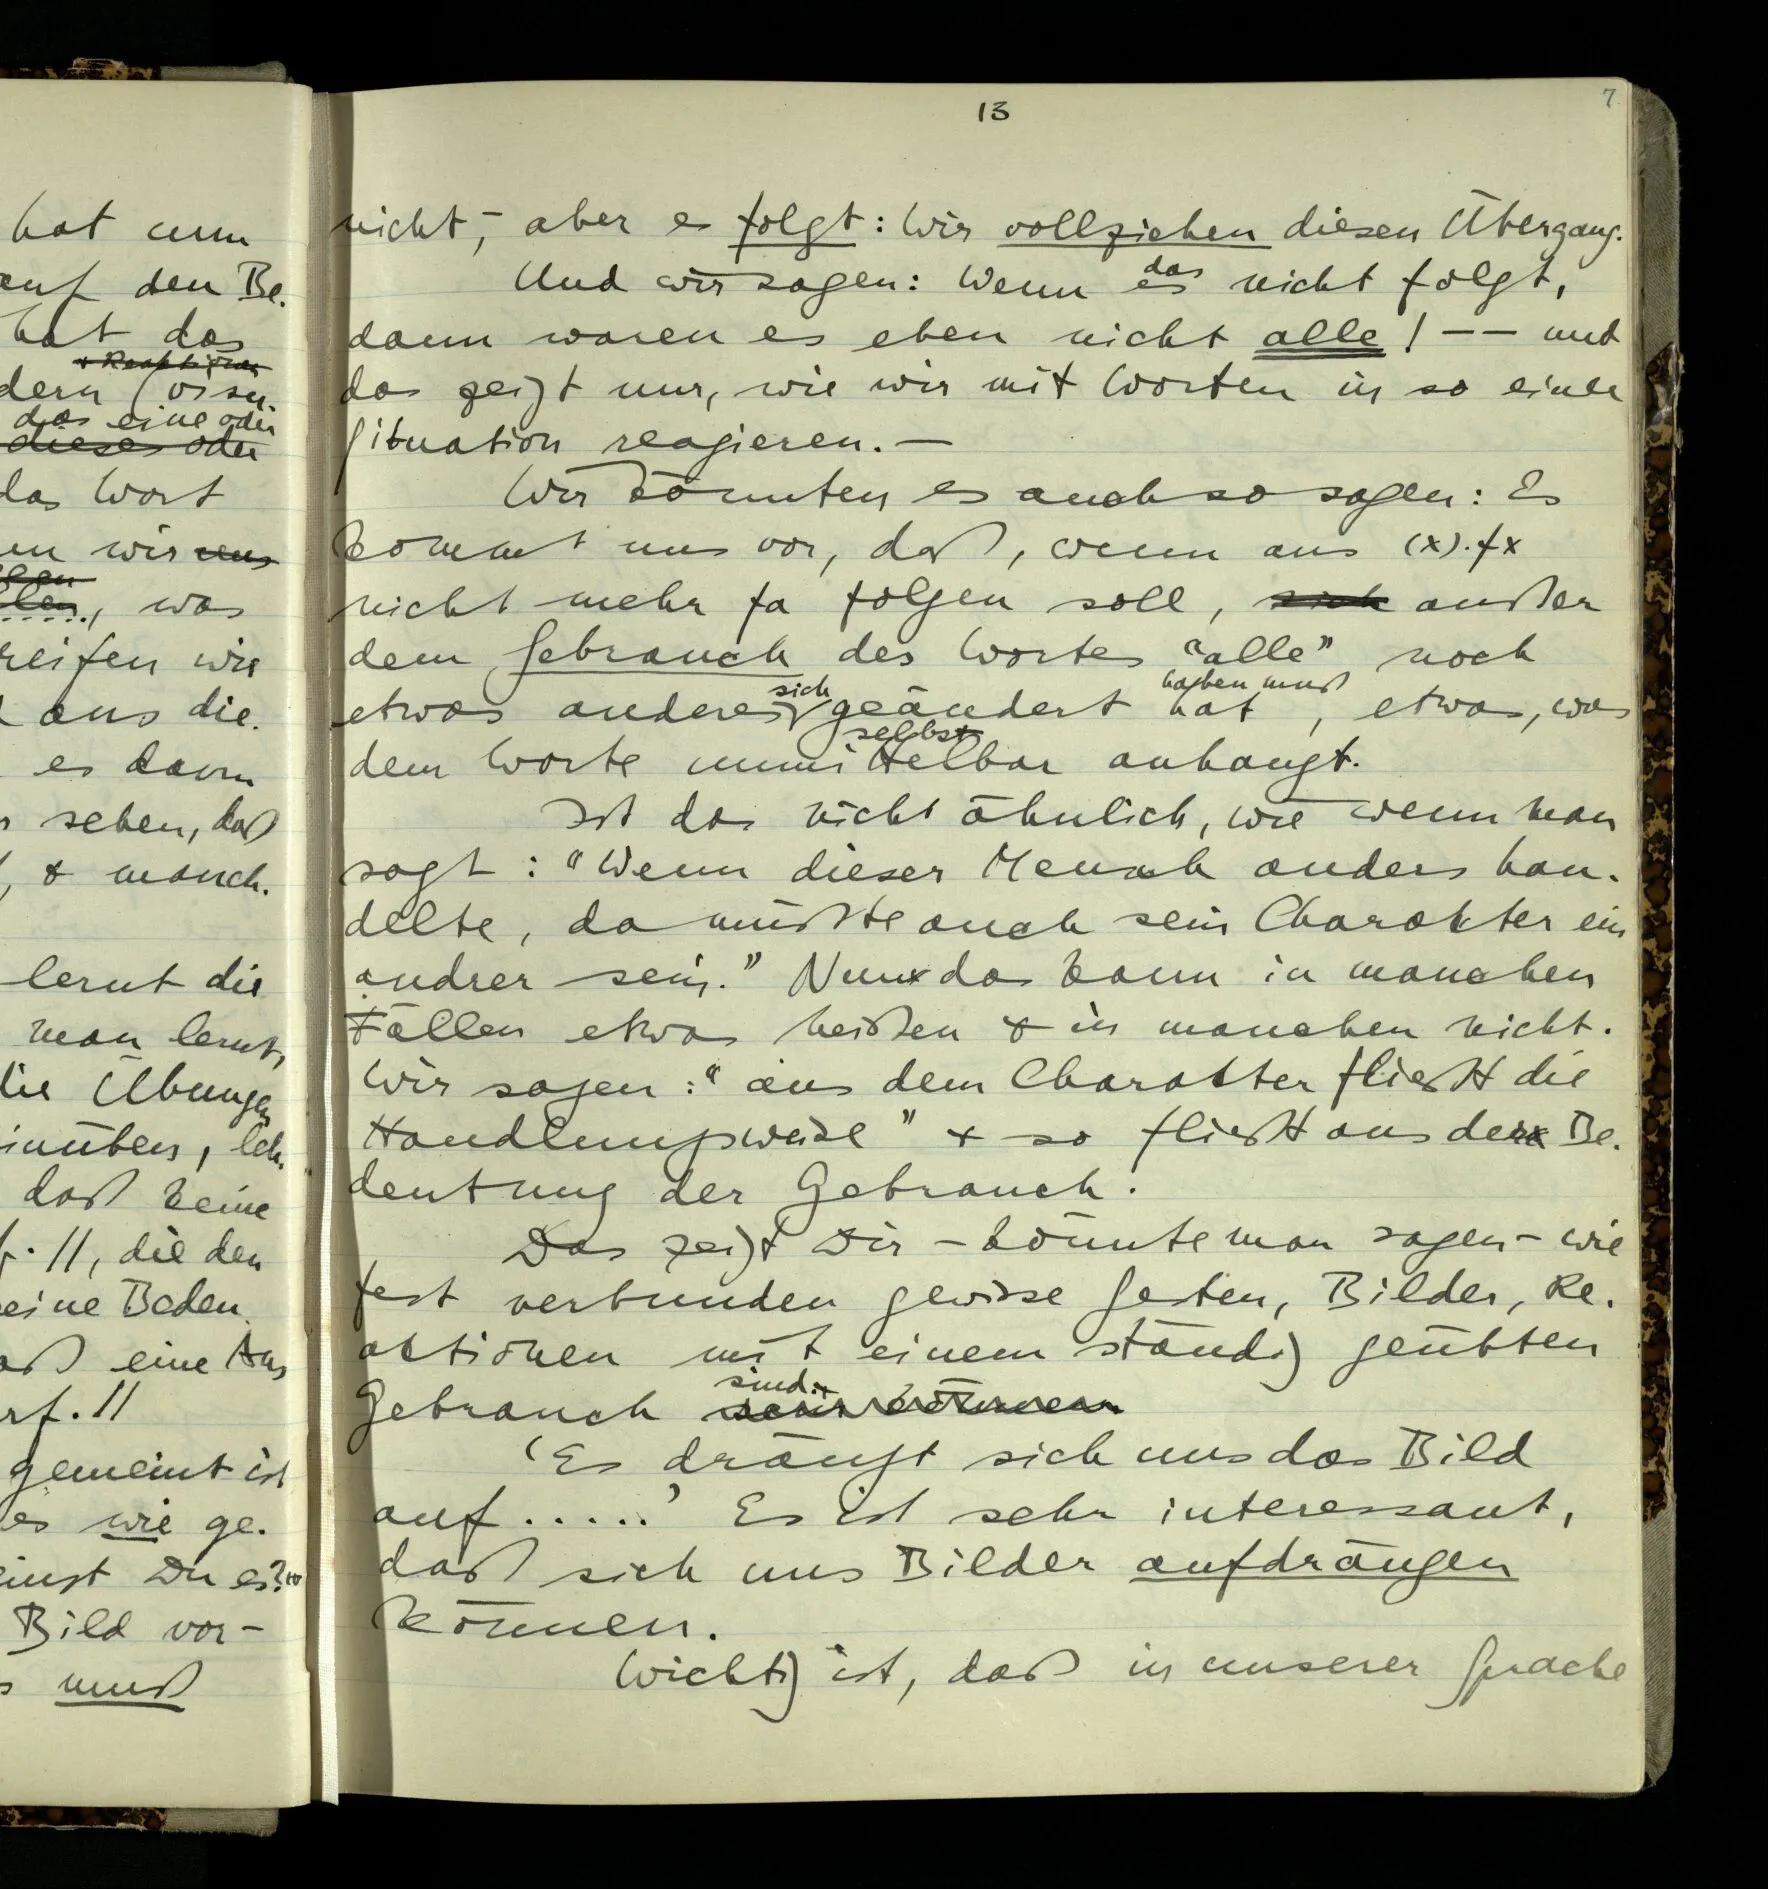 13
7
hat nun
auf den Be-
hat das
+ Reaktionen
dern (visu-
das eine oder
dieses oder
das Wort
wir uns
, was
greifen wir
aus die-
es dann
sehen, daß
, & manch-
lernt die
man lernt,
die Übungen
einüben, leh-
daß keine
f. 11, die den
eine Bedeu-
daß eine Aus
rf. 11
gemeint ist
es wie ge-
meinst Du es?"
Bild vor-
muß
nicht, – aber es folgt: Wir vollziehen diesen Übergang.
Und wir sagen: Wenn es das nicht folgt,
dann waren es eben nicht alle! –– und
das zeigt nur, wie wir mit Worten in so einer
Situation reagieren. –
Wir könnten es auch so sagen: Es
kommt uns vor, daß, wenn aus (x).fx
nicht mehr fa folgen soll, sich außer
dem Gebrauch des Wortes "alle" noch
etwas anderes sich geändert hat haben muß, etwas, was
dem Worte selbst unmittelbar anhangt.
Ist das nicht ähnlich, wie wenn man
sagt: "Wenn dieser Mensch anders han-
delte, da müßte auch sein Charakter ein
andrer sein." Nun das kann in manchen
Fällen etwas heißen & in manchen nicht.
Wir sagen: "aus dem Charakter fließt die
Handlungsweise" & so fließt aus der Be-
deutung der Gebrauch.
Das zeigt Dir – könnte man sagen – wie
fest verbunden gewisse Gesten, Bilder, Re-
aktionen mit einem ständig geübten
Gebrauch sind. sein können
'Es drängt sich uns das Bild
auf .....' Es ist sehr interessant,
daß sich uns Bilder aufdrängen
können.
Wichtig ist, daß in unserer Sprache